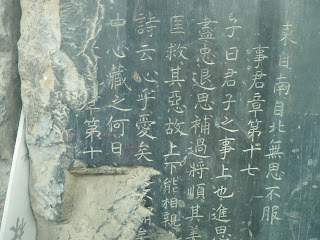 東自南自北無思不服
事君章第十七
子曰君子之事上也進思
盡忠退思補過將順其美
匡救其惡故上下能相親
詩云心乎愛矣不謂矣
中心藏之何日
第十